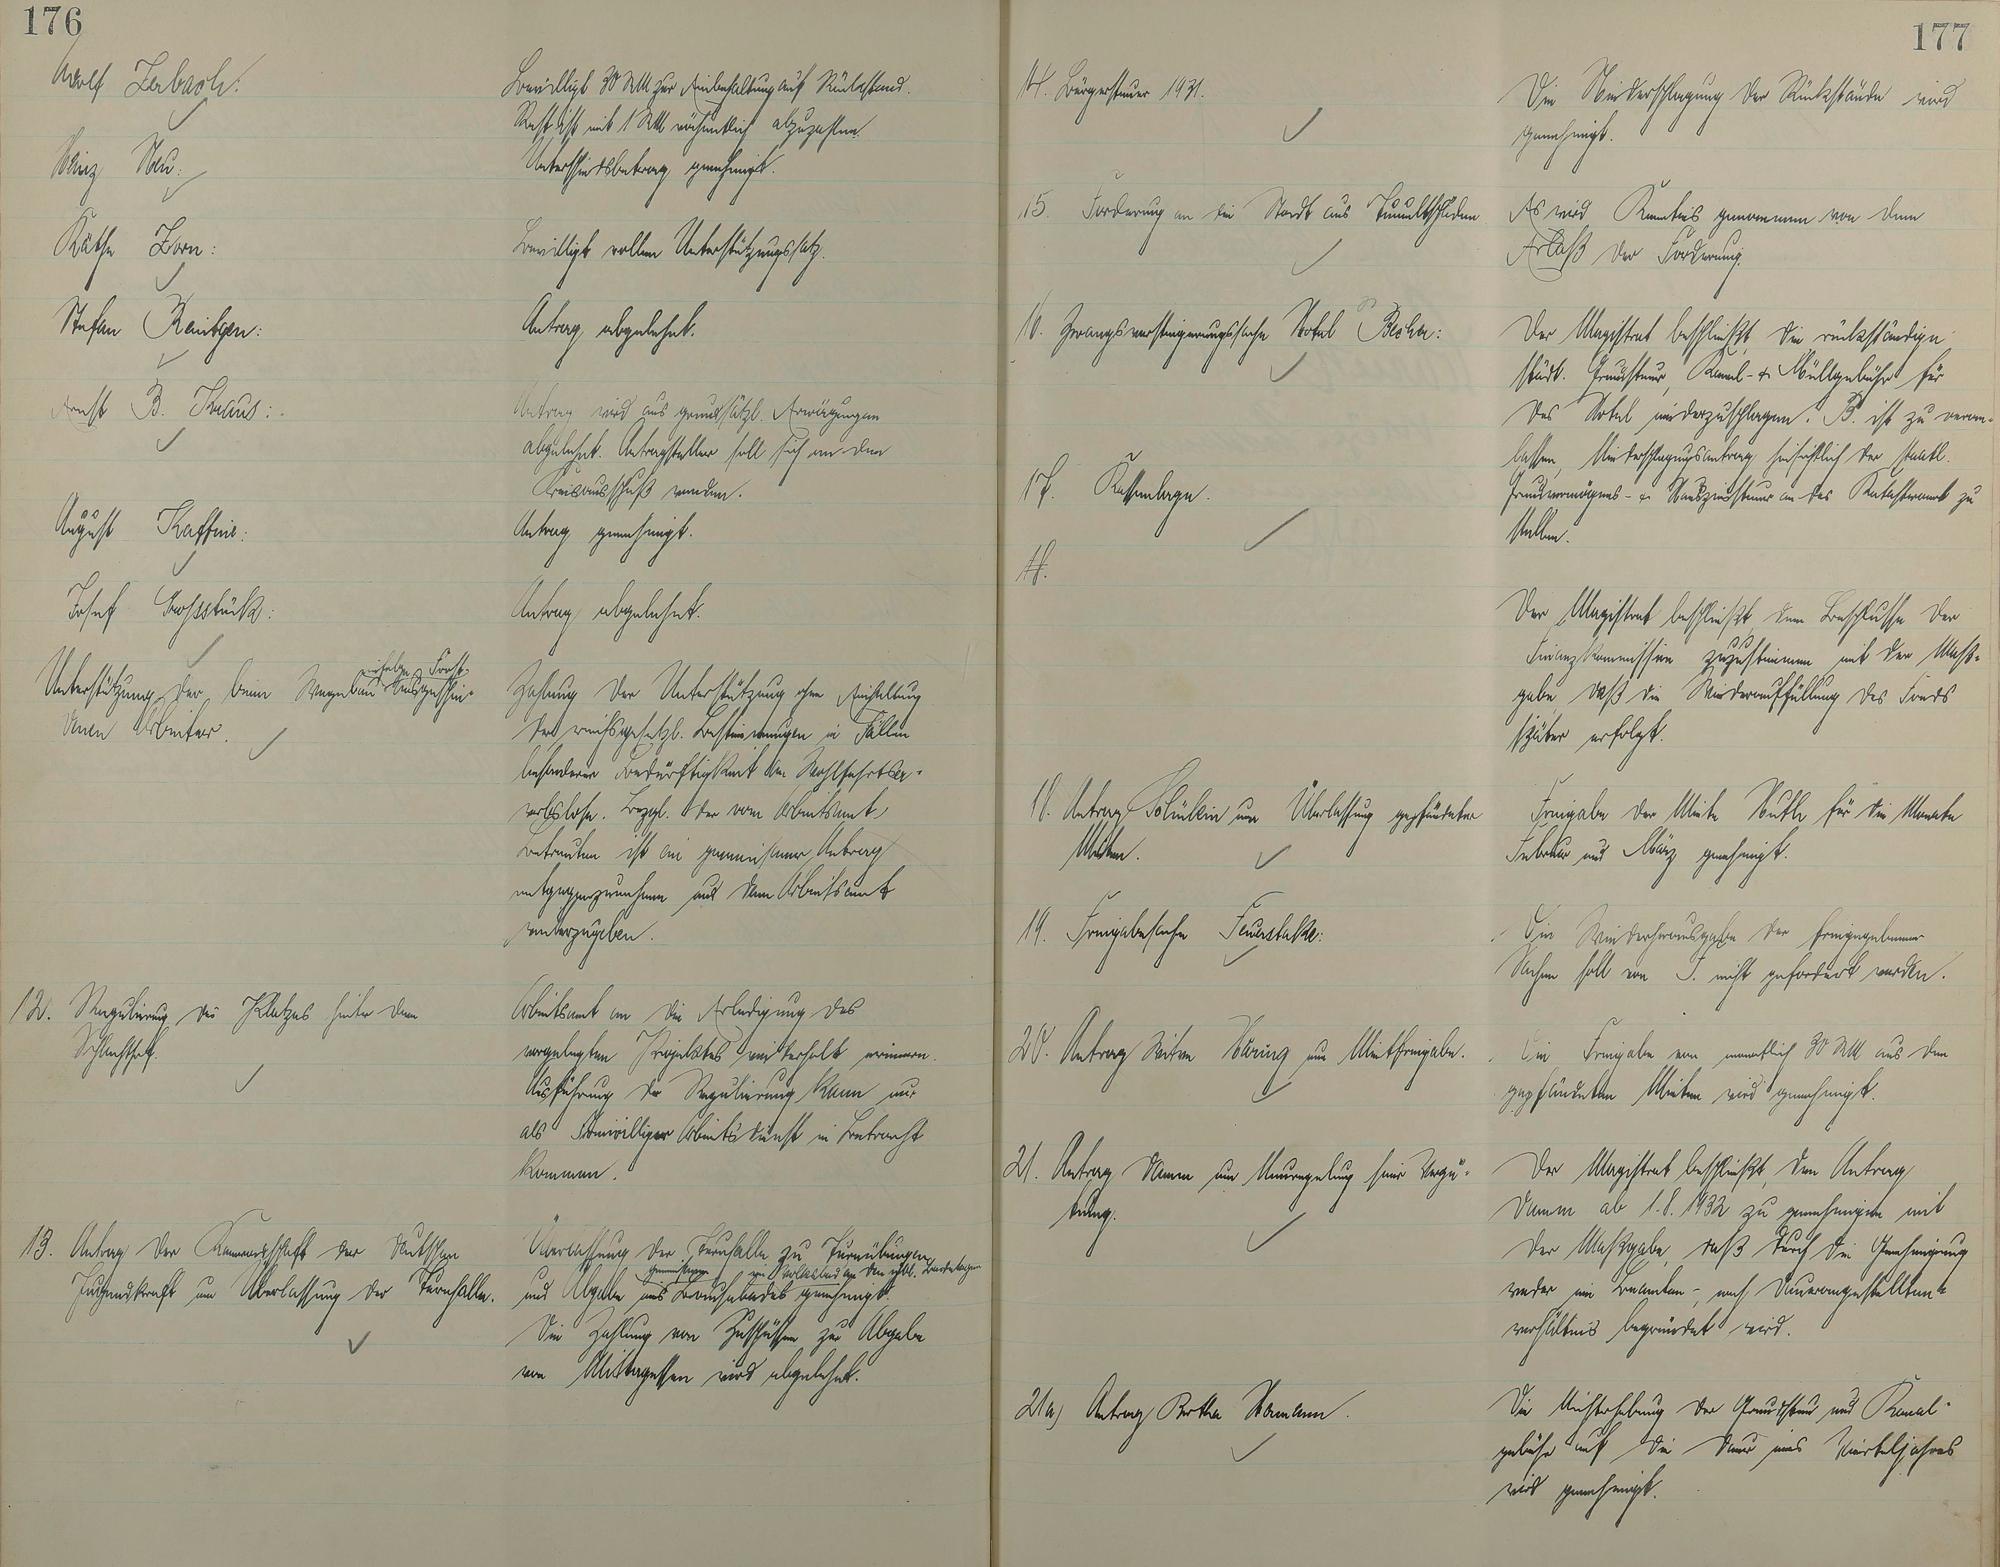 176
Adolf Zerbach:
Bewilligt 30 RM zur Einbehaltung auf Rückstand.
Rest ist mit 1 RM wöchentlich abzuzahlen.
Heinz Neu:
Unterschiedsbetrag genehmigt.
Käthe Zorn:
Bewilligt vollen Unterstützungssatz.
Stefan
Antrag abgelehnt.
Ernst B. Kraus:
Antrag wird aus grundsätzl. Erwägungen
abgelehnt. Antragsteller soll sich an den
Kreisausschuß wenden.
August
Antrag genehmigt.
Josef
Antrag abgelehnt.
Unterstützung der beim Wegebau infolge Frost ausgeschie-
denen Arbeiter.
Zahlung der Unterstützung ohne
der reichsgesetzl. Bestimmungen in Fällen
besonderer Bedürftigkeit an Wohlfahrtser-
werbslose. Bezgl. der vom Arbeitsamt
Betreuten ist ein gemeinsamer Antrag
entgegenzunehmen und dem Arbeitsamt
weiterzugeben.
12. Regulierung des Platzes hinter dem
Schlachthof.
Arbeitsamt an die Erledigung des
vorgelegten Projektes wiederholt erinnern.
Ausführung der Regulierung kann nur
als Freiwilliger Arbeitsdienst in Betracht
kommen.
13. Antrag der Kameradschaft der Deutschen
Jugendkraft um Überlassung der Turnhalle.
Überlassung der Turnhalle zu Turnübungen
und Abgabe eines Brausebades genehmigt.
Die Zahlung von Zuschüssen zur Abgabe
von Mittagessen wird abgelehnt.
177
14. Bürgersteuer 1931.
Die Niederschlagung der Rückstände wird
genehmigt.
15. Forderung an die Stadt aus Tumultschäden
Es wird Kenntnis genommen von dem
Erlaß der Forderung.
16. Zwangsversteigerungssache Hotel Becker:
Der Magistrat beschließt, die rückständige
städt. Grundsteuer, Kanal- & Müllgebühr für
das Hotel niederzuschlagen. B. ist zu veran-
lassen, Niederschlagungsantrag hinsichtlich der staatl.
Grundvermögens- & Hauszinssteuer an das Katasteramt zu
stellen.
17. Kassenlage.
18.
Der Magistrat beschließt, dem Beschlusse der
Finanzkommission zuzustimmen mit der Maß-
gabe, daß die Wiederauffüllung des Fonds
später erfolgt.
18. Antrag um Überlassung gepfändeter
Mieten.
Freigabe der Miete für die Monate
Februar und März genehmigt.
19. Freigabesache
Die Wiederherausgabe der freigegebenen
Sachen soll von F. nicht gefordert werden.
20. Antrag Witwe Häring um Mietfreigabe.
Die Freigabe von monatlich 30 RM aus den
gepfändeten Mieten wird genehmigt.
21. Antrag Damm um Neuregelung seiner Vergü-
tung.
Der Magistrat beschließt, den Antrag
Damm ab 1.8.1932 zu genehmigen mit
der Maßgabe, daß durch die Genehmigung
weder ein Beamten-, noch Dauerangestellten-
verhältnis begründet wird.
21a) Antrag Bertha
Die Nichterhebung der Grundsteuer und Kanal-
gebühr auf die Dauer eines Vierteljahres
wird genehmigt.